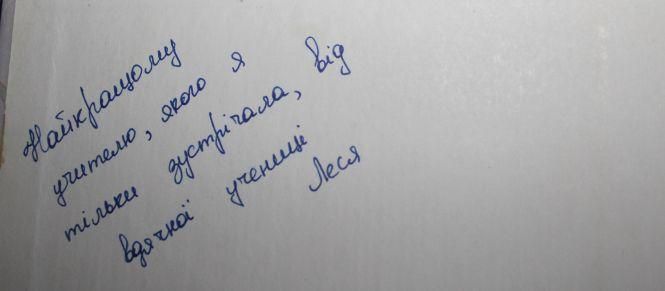 Найкращому
учителю, якого я
тільки зустрічала, від
вдячної учениці
Леся